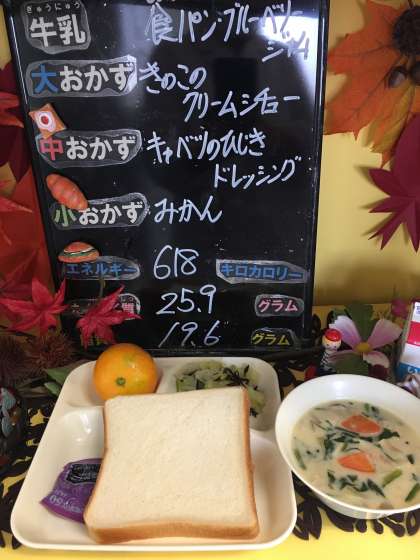 ぎゅうにゅう
牛乳 食パン・ブルーベリー
ジャム
大おかず きのこの
クリームシチュー
中おかず キャベツのひじき
ドレッシング
小おかず みかん
エネルギー 618 キロカロリー
25.9 グラム
19.6 グラム